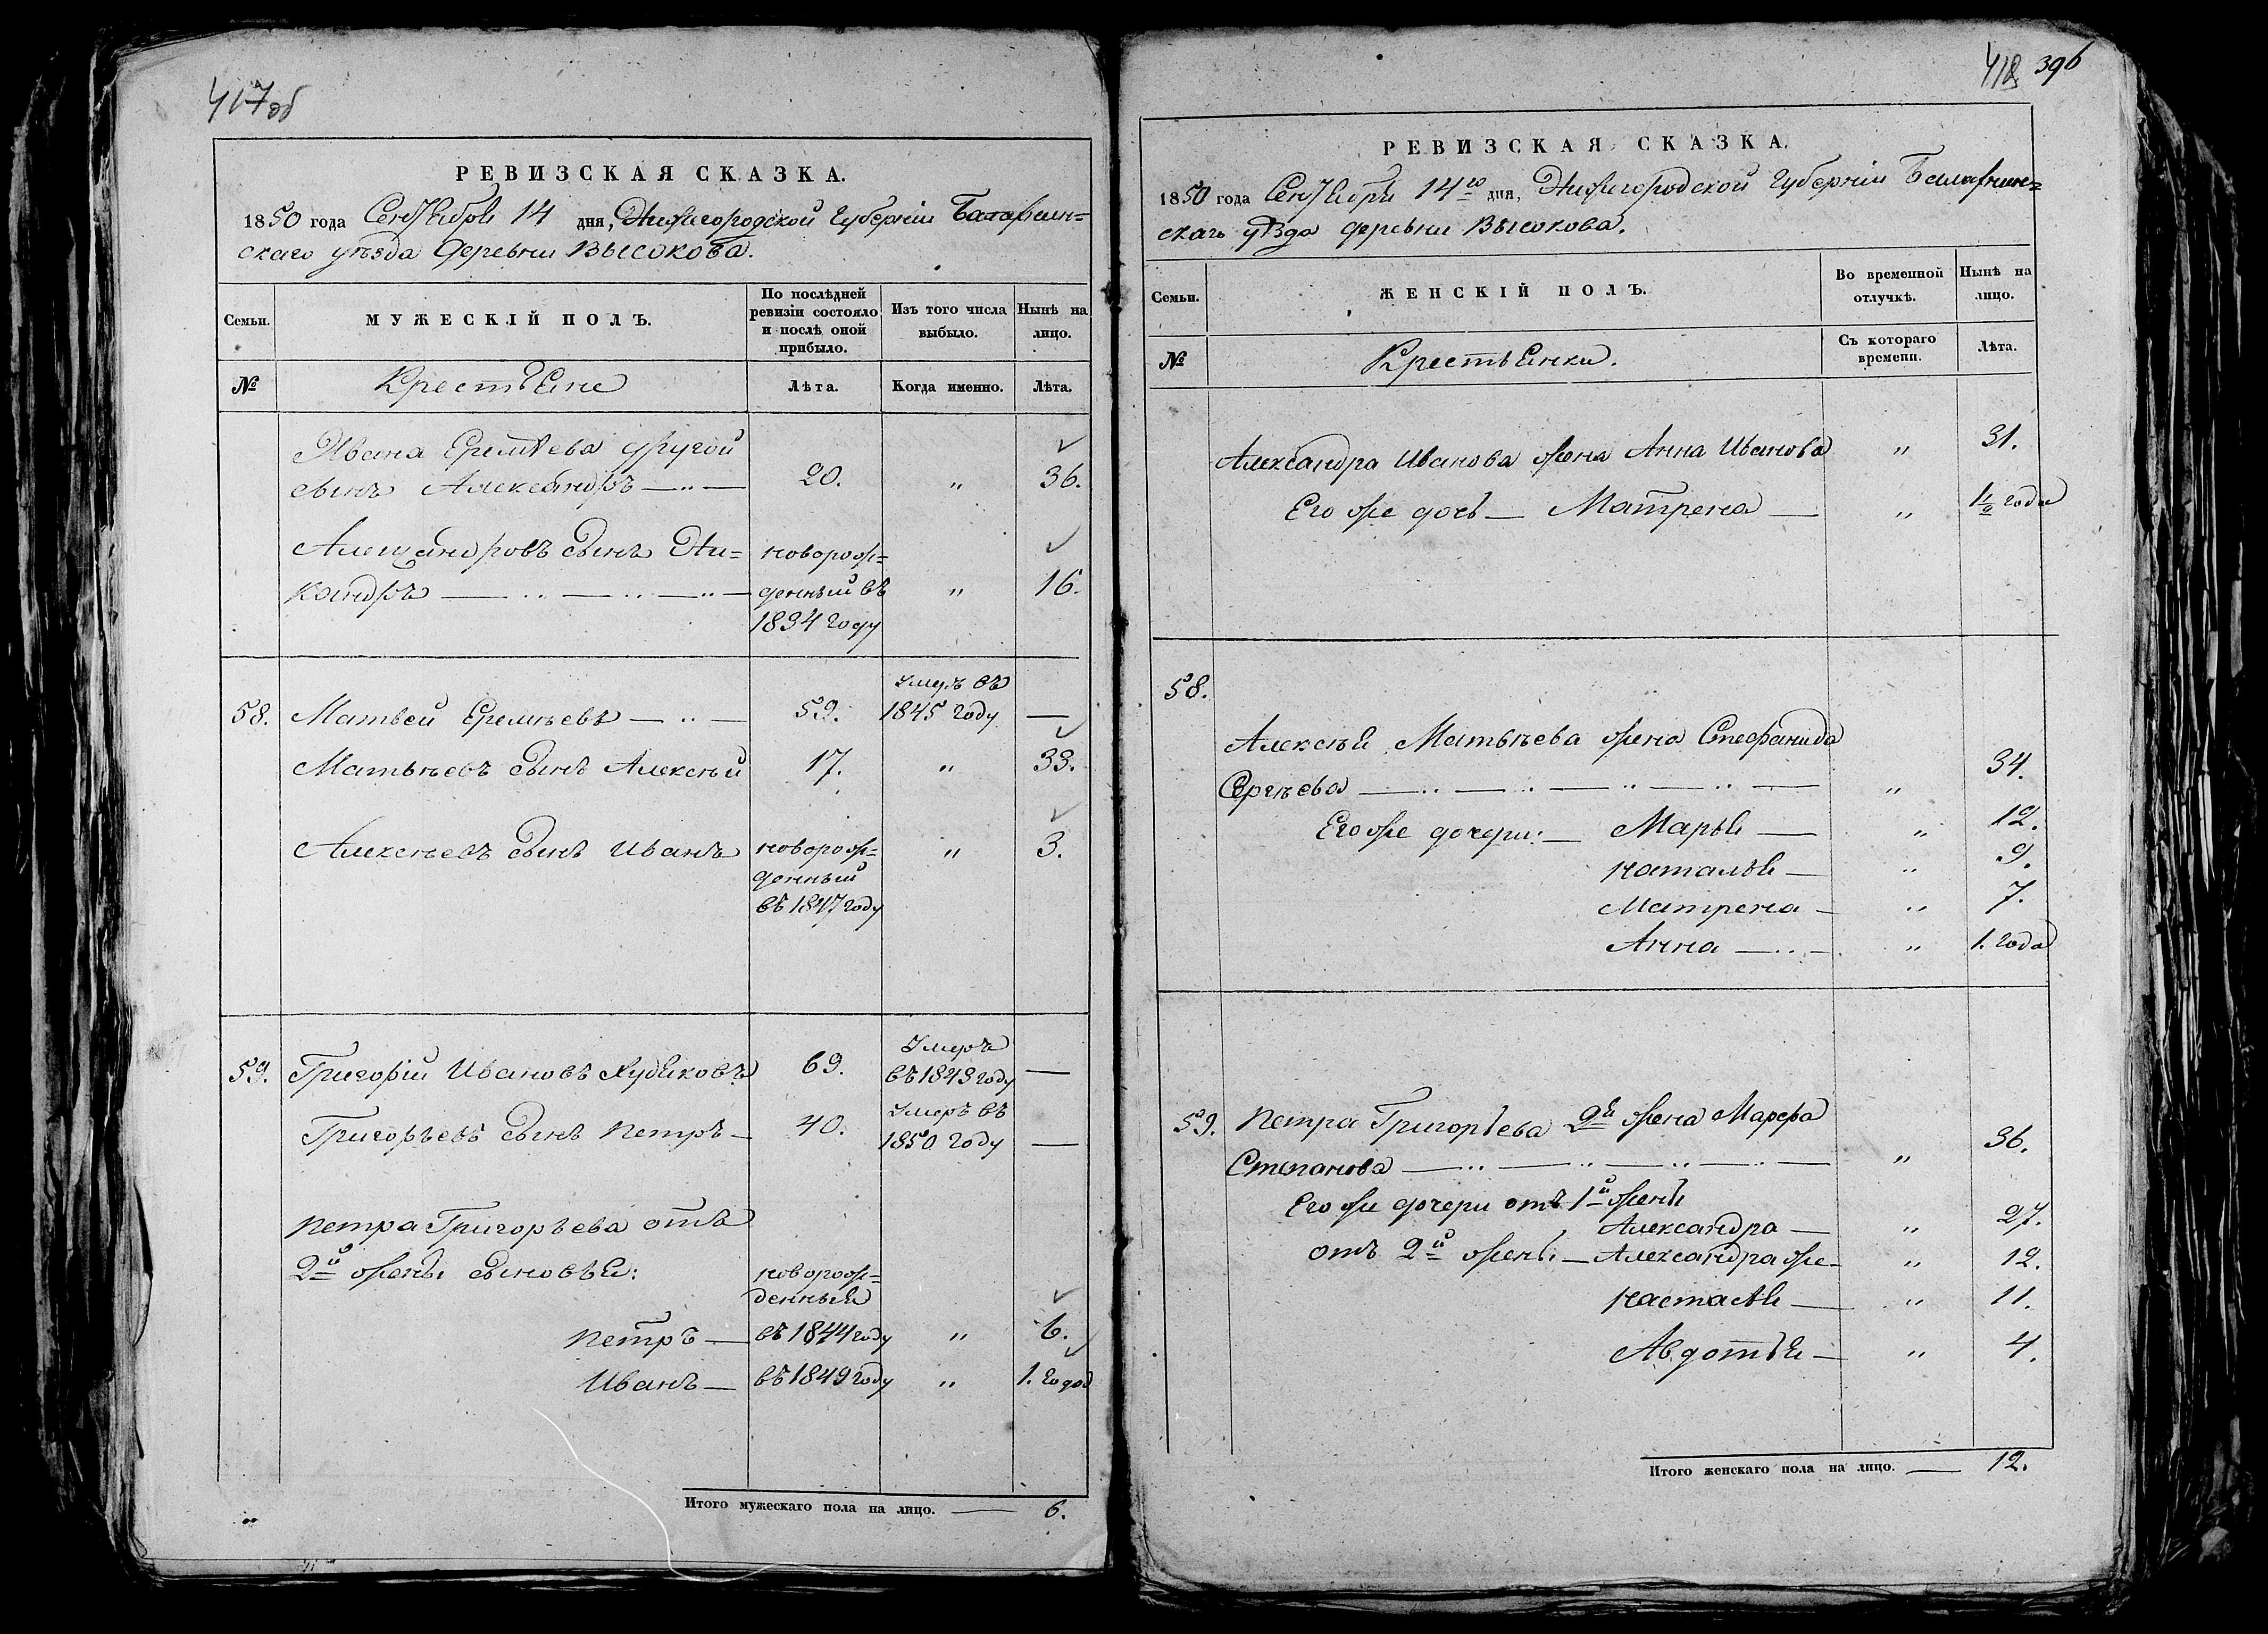 417об
РЕВИЗСКАЯ СКАЗКА.
1850 года Сентября 14 дня, Нижегородской Губерніи Балахнин=
скаго уѣзда Деревни Высокова.
Семьи.
МУЖЕСКІЙ ПОЛЪ.
По послѣдней ревизіи состояло и послѣ оной прибыло.
Изъ того числа выбыло.
Нынѣ на лицо.
№
Крестьяне
Лѣта.
Когда именно.
Лѣта.
Ивана Еремѣева другой
сынъ Александръ — 20. „ 36.
Александровъ сынъ Ни=
кандръ — новорож=
денный въ
1834 году „ 16.
58. Матвей Еремѣевъ — 59. Умеръ въ
1845 году —
Матвѣевъ сынъ Алексѣй 17. „ 33.
Алексѣевъ сынъ Иванъ новорож=
денный
въ 1847 году „ 3.
59. Григорій Ивановъ Худяковъ 69. Умеръ
въ 1843 году —
Григорьевъ сынъ Петръ — 40. Умеръ въ
1850 году —
Петра Григорьева отъ
2й жены сыновья:
новорож=
денныя
Петръ — въ 1844 году „ 6.
Иванъ — въ 1849 году „ 1. годъ
Итого мужескаго пола на лицо. — 6.
418 396
РЕВИЗСКАЯ СКАЗКА.
1850 года Сентября 14го дня, Нижегородской Губерніи Балахнин=
скаго уѣзда деревни Высокова.
Семьи.
ЖЕНСКІЙ ПОЛЪ.
Во временной отлучкѣ.
Нынѣ на лицо.
№
Крестьянки.
Съ котораго времени.
Лѣта.
Александра Иванова жена Анна Иванова „ 31.
Его же дочь — Матрена — „ 1½ года
58.
Алексѣя Матвѣева жена Стефанида
Сергѣева — „ 34.
Его же дочери: — Марья — „ 12.
Наталья — „ 9.
Матрена — „ 7.
Анна — „ 1. года
59. Петра Григорьева 2я жена Марфа
Степанова — „ 36.
Его же дочери отъ 1й жены
Александра — „ 27.
отъ 2й жены — Александра же — „ 12.
Настасья — „ 11.
Авдотья — „ 4.
Итого женскаго пола на лицо. — 12.